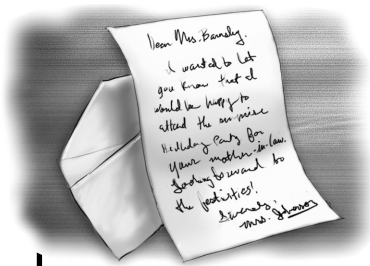 Dear Mrs. Barnaby,
I wanted to let
you know that I
would be happy to
attend the surprise
birthday party for
your mother-in-law.
Looking forward to
the festivities!
Sincerely,
Mrs. Johnson